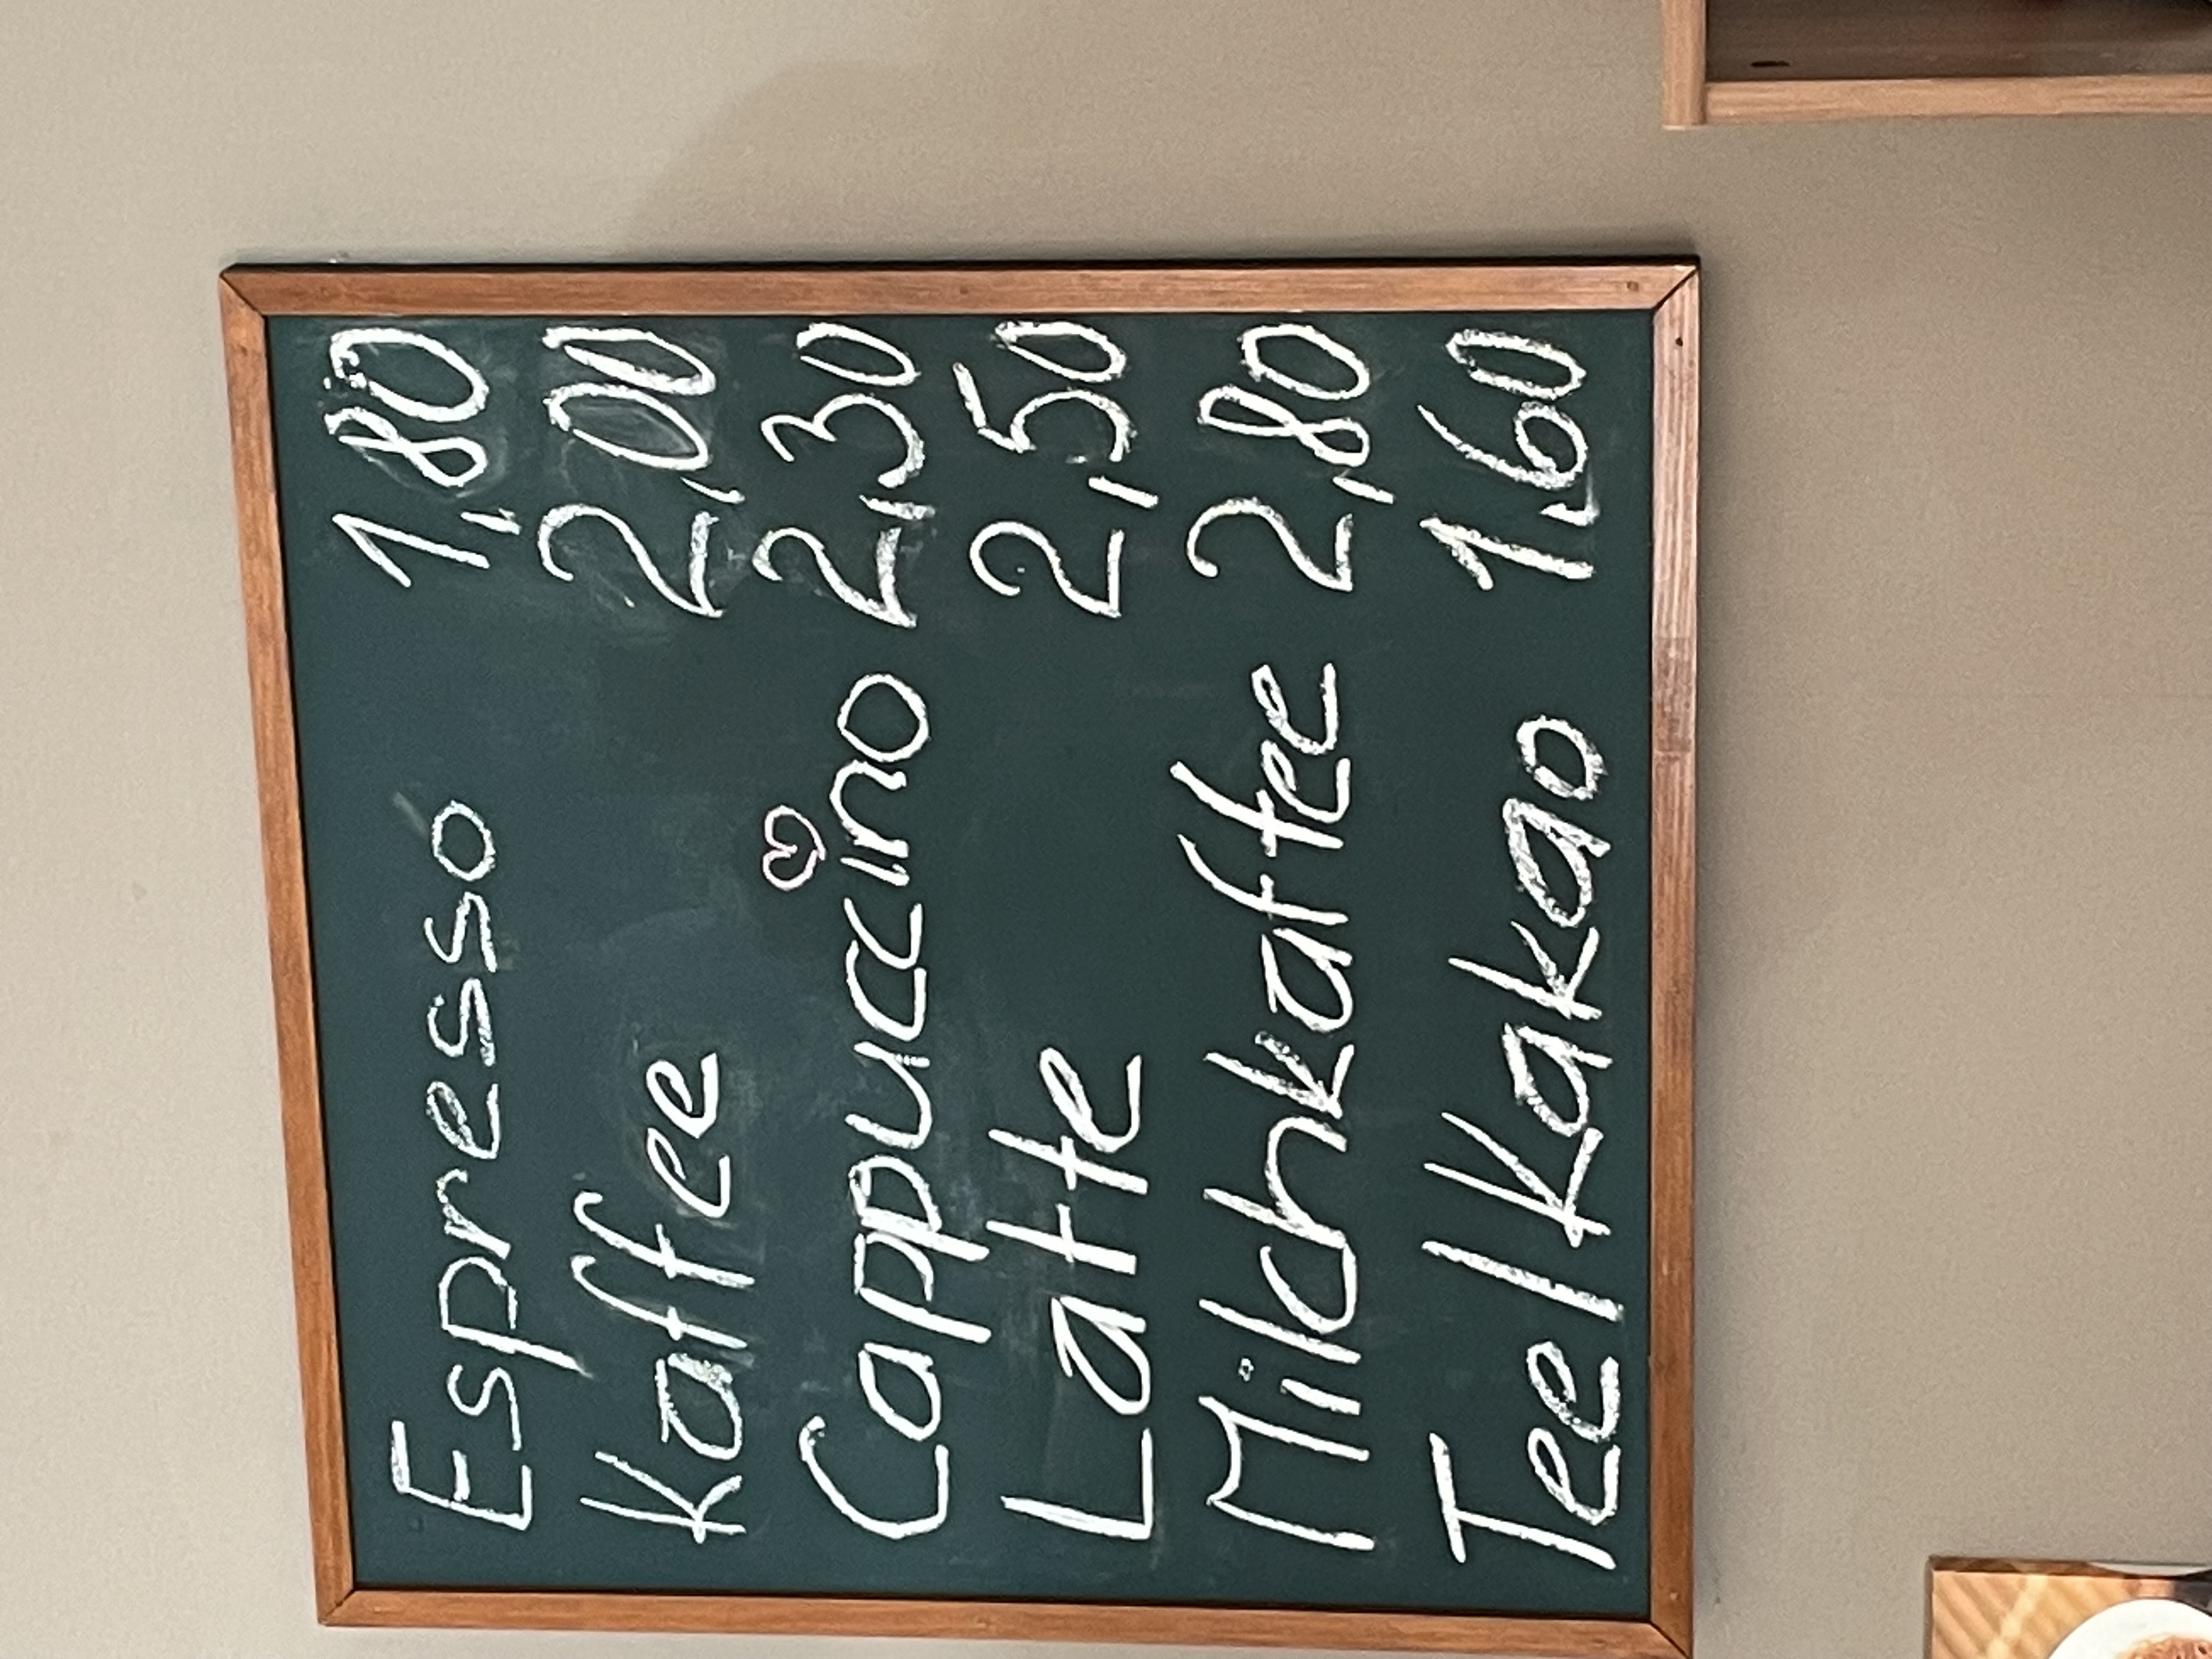 Espresso 1,80
Kaffee 2,00
Cappuccino 2,30
Latte 2,50
Milchkaffee 2,80
Tee/Kakao 1,60